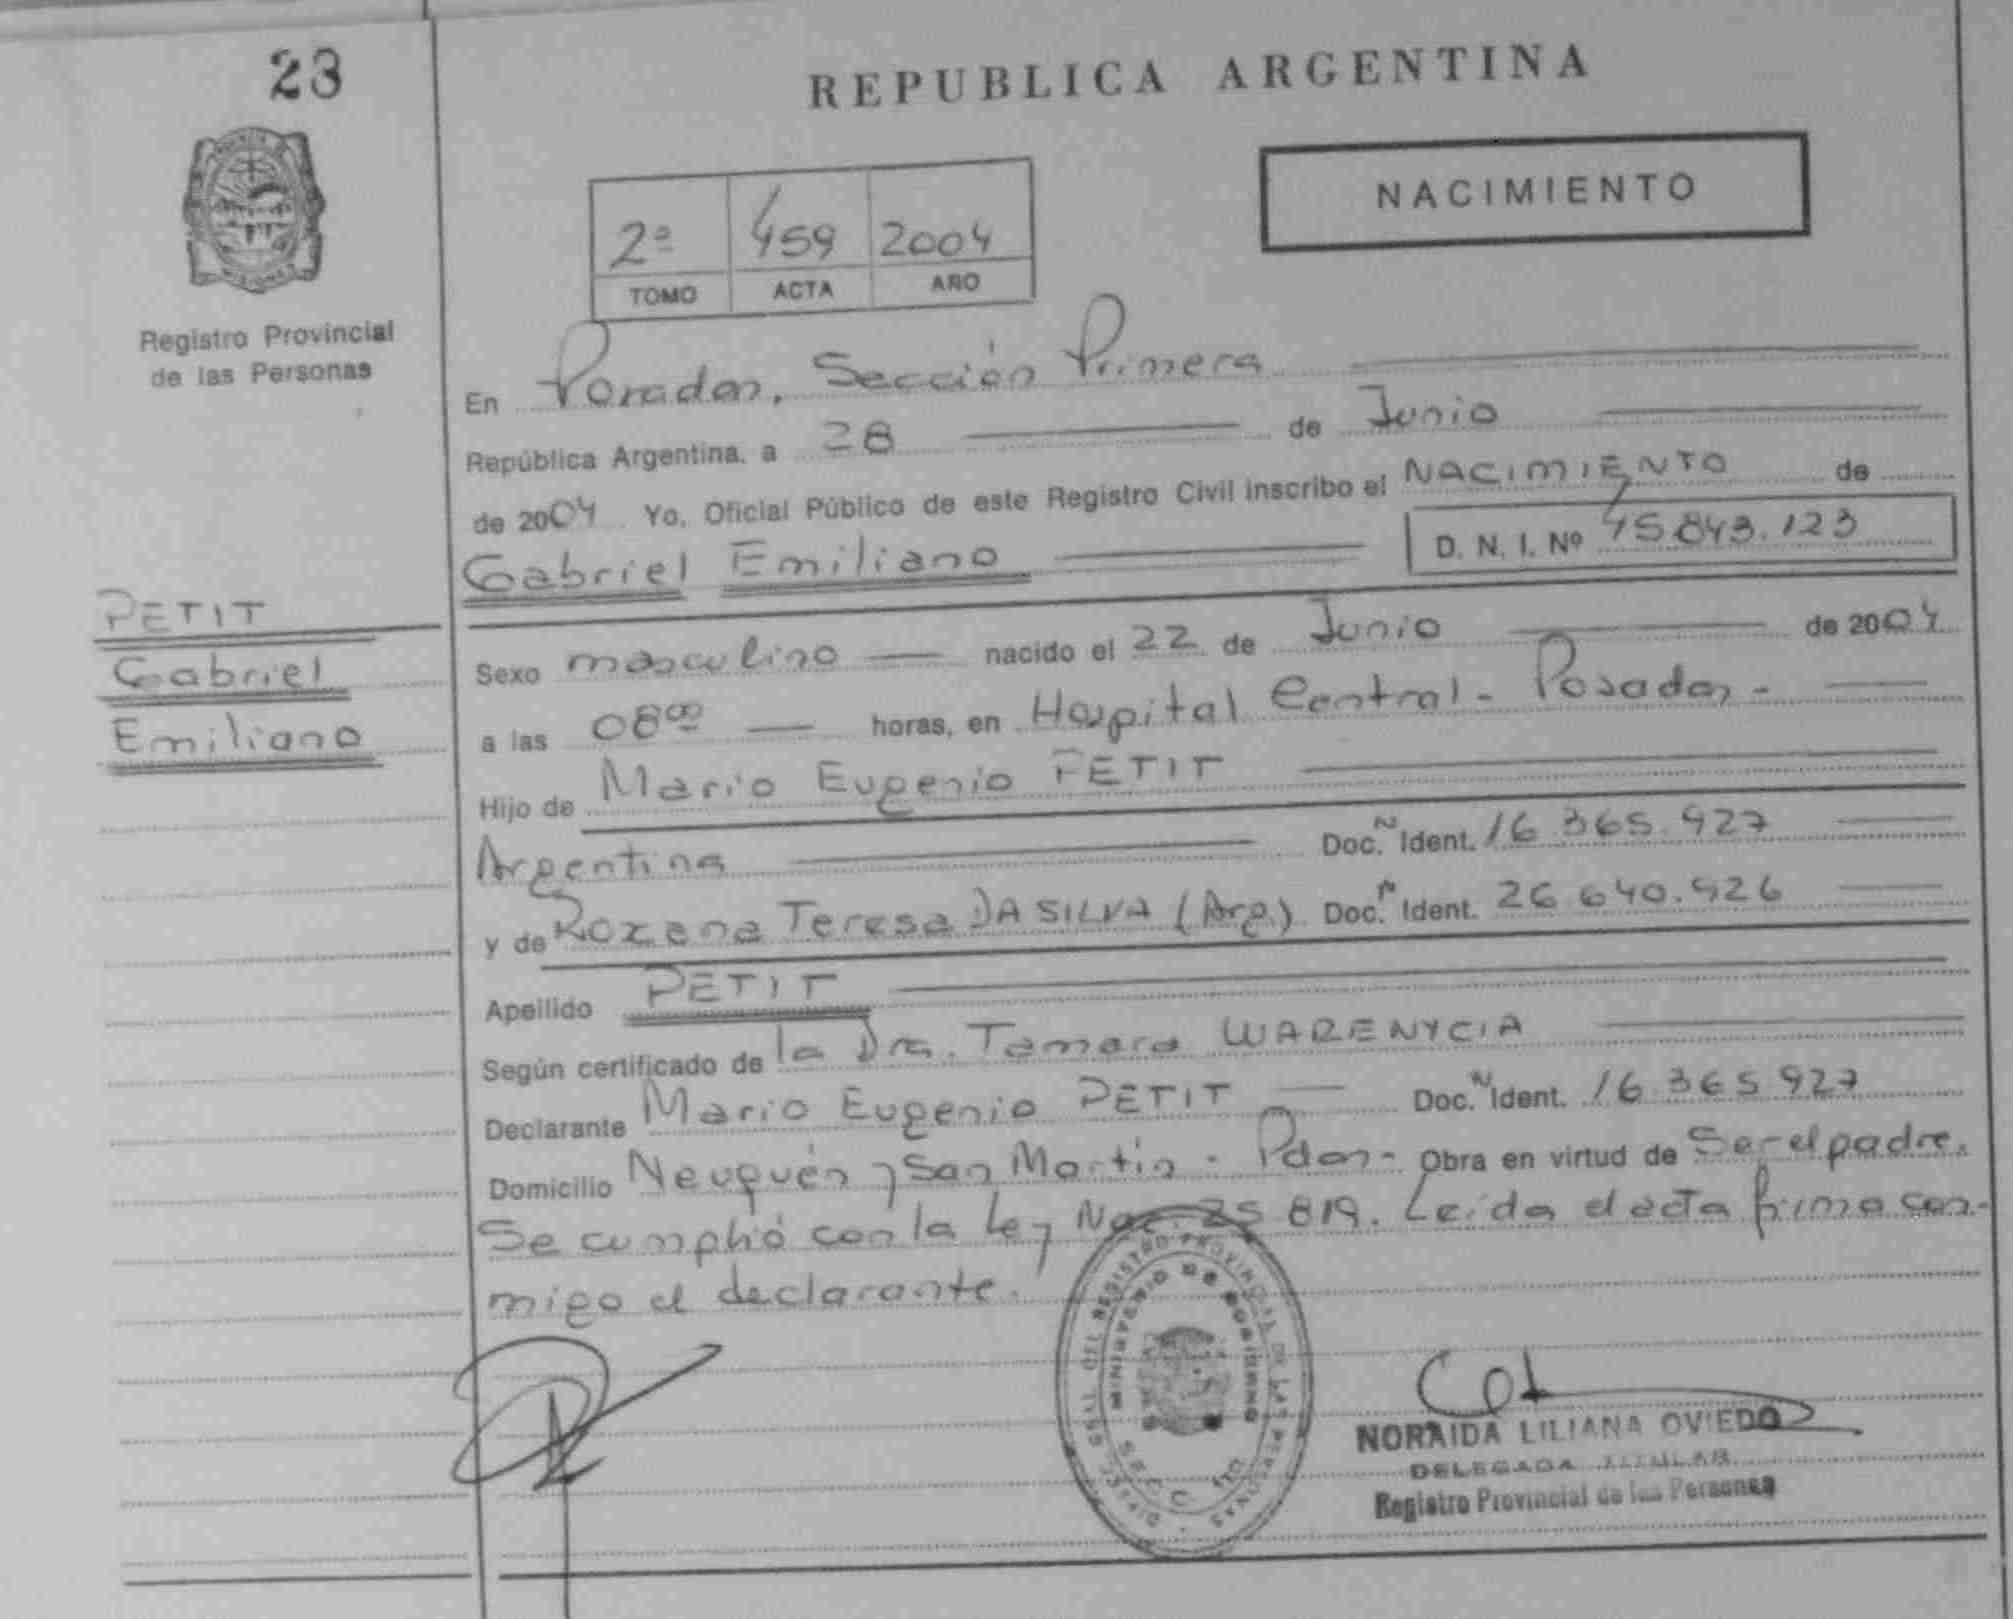 23
REPUBLICA ARGENTINA
NACIMIENTO
2º 459 2004
TOMO ACTA AÑO
Registro Provincial
de las Personas
En Posadas, Sección Primera
República Argentina, a 28 de Junio
de 2004 Yo, Oficial Público de este Registro Civil inscribo el NACIMIENTO de
Gabriel Emiliano D. N. I. Nº 45.843.123
PETIT
Gabriel
Emiliano
Sexo masculino nacido el 22 de Junio de 2004
a las 08ºº horas, en Hospital Central - Posadas -
Hijo de Mario Eugenio PETIT
Argentina Doc. N Ident. 16.365.927
y de Roxana Teresa DA SILVA (Arg.) Doc. N Ident. 26.640.926
Apellido PETIT
Según certificado de la Dra. Tamara WARENYCIA
Declarante Mario Eugenio PETIT Doc. N Ident. 16.365.927
Domicilio Neuquén y San Martín - Pdas - Obra en virtud de Ser el padre.
Se cumplió con la Ley Nac. 25.819. Leída el acta firma con-
migo el declarante.
DIRECC. GRAL. DEL REGISTRO PROVINCIAL DE LAS PERSONAS
MINISTERIO DE GOBIERNO
SECC.
NORAIDA LILIANA OVIEDO
DELEGADA TITULAR
Registro Provincial de las Personas